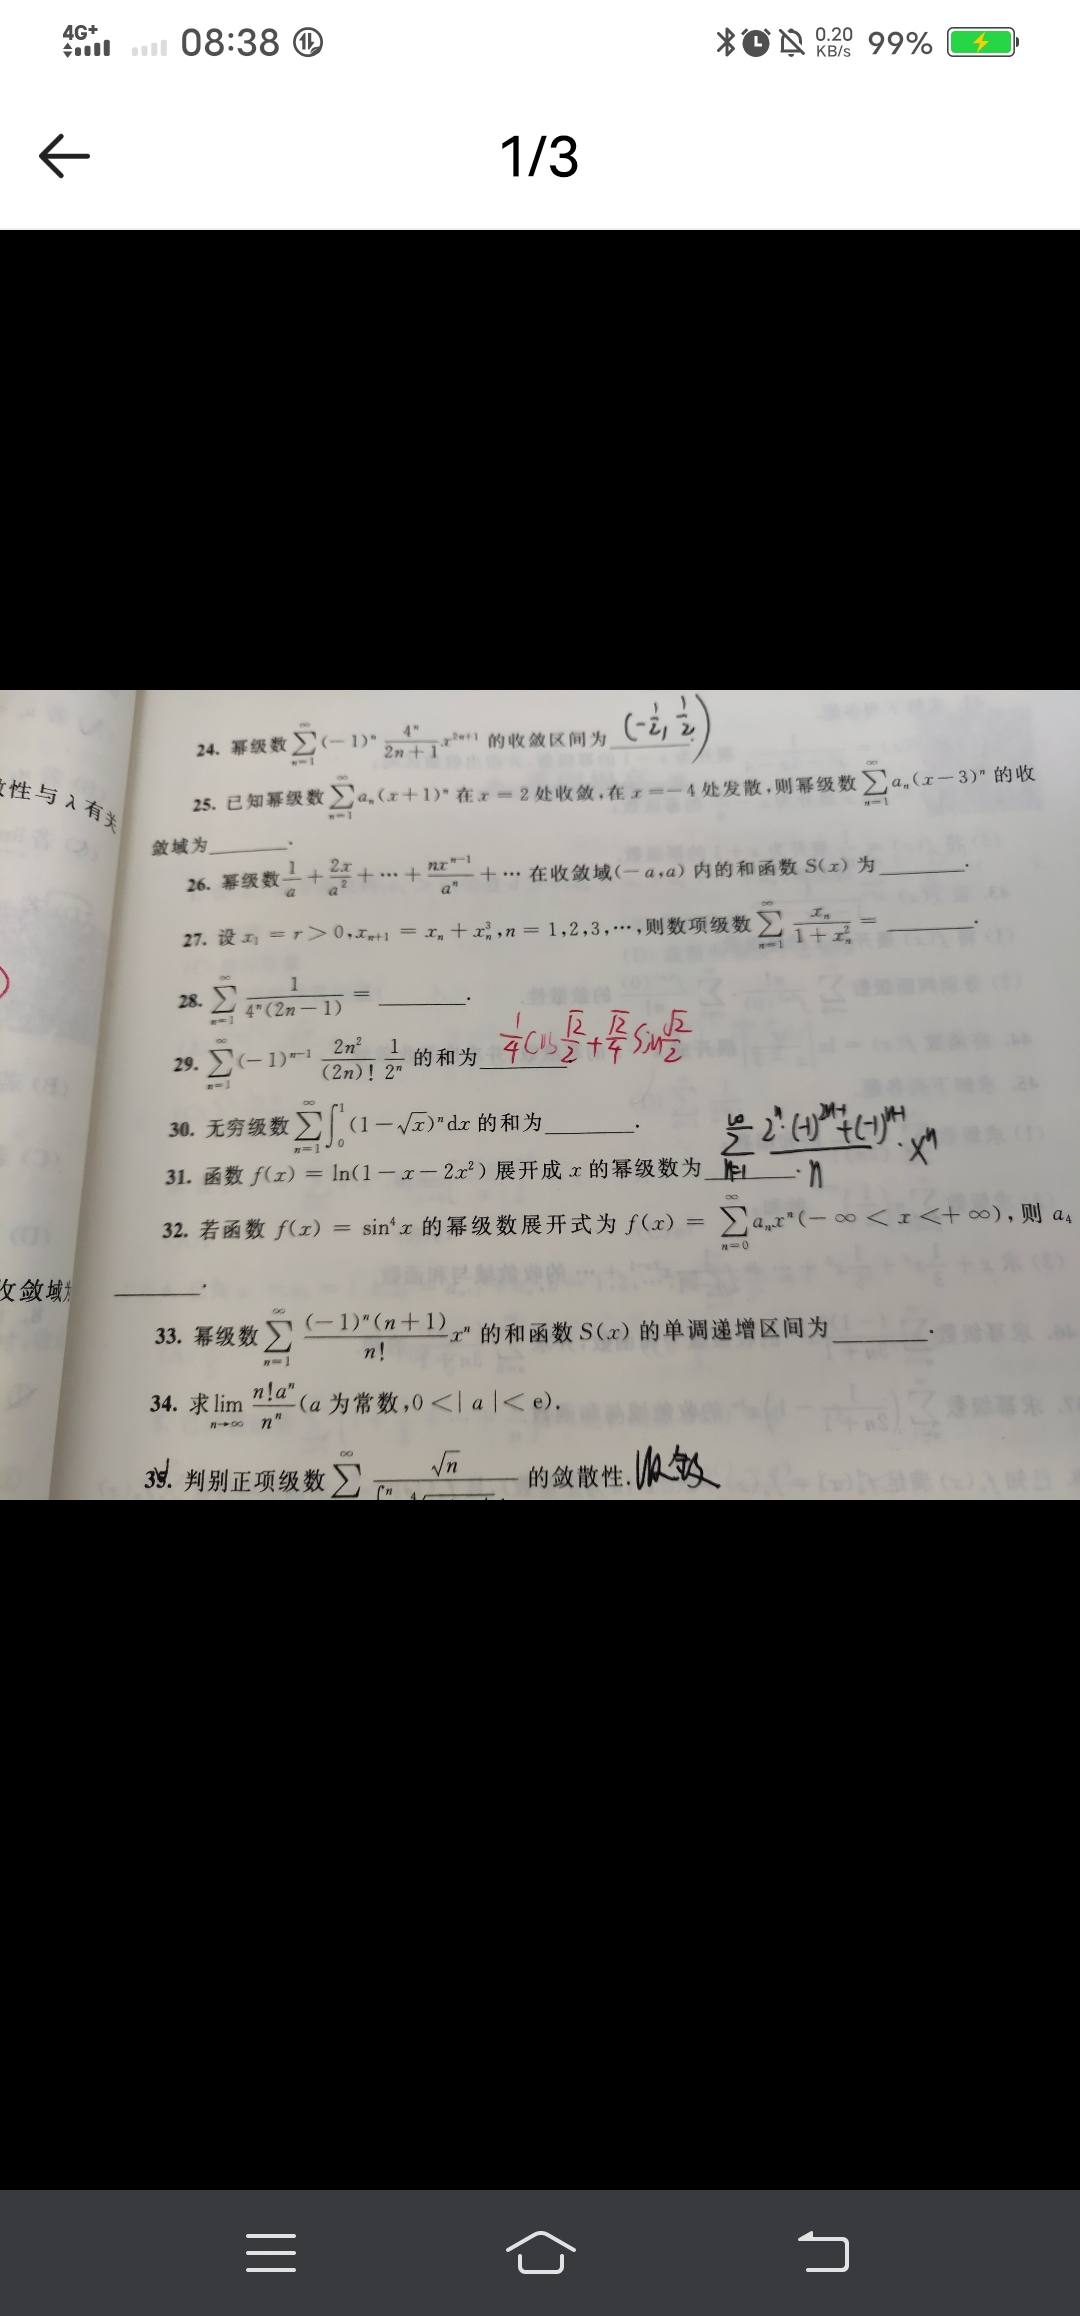 4G+ 08:38 0.20 KB/s 99%
1/3
24. 幂级数 $\sum_{n=1}^{\infty}(-1)^n\frac{4^n}{2n+1}x^{2n+1}$ 的收敛区间为 $(-\frac{1}{2},\frac{1}{2})$.
性与 λ 有关
25. 已知幂级数 $\sum_{n=1}^{\infty}a_n(x+1)^n$ 在 $x=2$ 处收敛,在 $x=-4$ 处发散,则幂级数 $\sum_{n=1}^{\infty}a_n(x-3)^n$ 的收
敛域为______.
26. 幂级数 $\frac{1}{a}+\frac{2x}{a^2}+\cdots+\frac{nx^{n-1}}{a^n}+\cdots$ 在收敛域$(-a,a)$ 内的和函数 $S(x)$ 为______.
27. 设 $x_1=r>0,x_{n+1}=x_n+x_n^3,n=1,2,3,\cdots$,则数项级数 $\sum_{n=1}^{\infty}\frac{x_n}{1+x_n^2}=$______.
28. $\sum_{n=1}^{\infty}\frac{1}{4^n(2n-1)}=$______.
29. $\sum_{n=1}^{\infty}(-1)^{n-1}\frac{2n^2}{(2n)!}\frac{1}{2^n}$ 的和为 $\frac{1}{4}\cos\frac{\sqrt{2}}{2}+\frac{\sqrt{2}}{4}\sin\frac{\sqrt{2}}{2}$
30. 无穷级数 $\sum_{n=1}^{\infty}\int_0^1(1-\sqrt{x})^n dx$ 的和为______.
31. 函数 $f(x)=\ln(1-x-2x^2)$ 展开成 $x$ 的幂级数为 $\sum_{n=1}^{\infty}\frac{2^n\cdot(-1)^{2n-1}+(-1)^{n+1}}{n}\cdot x^n$.
32. 若函数 $f(x)=\sin^4 x$ 的幂级数展开式为 $f(x)=\sum_{n=0}^{\infty}a_nx^n(-\infty<x<+\infty)$,则 $a_4$
收敛域
______.
33. 幂级数 $\sum_{n=1}^{\infty}\frac{(-1)^n(n+1)}{n!}x^n$ 的和函数 $S(x)$ 的单调递增区间为______.
34. 求 $\lim_{n\to\infty}\frac{n!a^n}{n^n}$ ($a$ 为常数,$0<|a|<e$).
35. 判别正项级数 $\sum^{\infty}\frac{\sqrt{n}}{\int^n}$ 的敛散性. 收敛